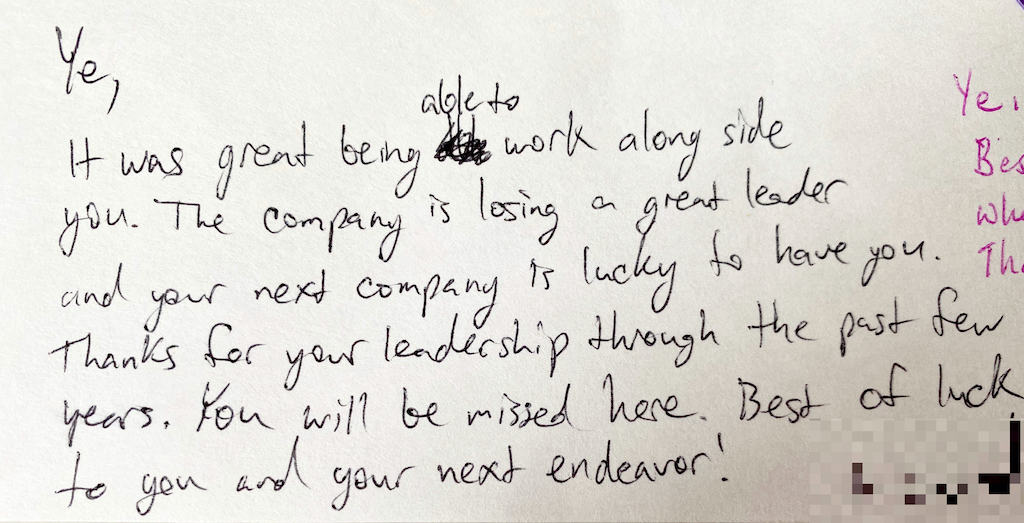 Ye,
able to
It was great being work along side
you. The company is losing a great leader
and your next company is lucky to have you.
Thanks for your leadership through the past few
years. You will be missed here. Best of luck
to you and your next endeavor!
Ye,
Bes
who
Tha